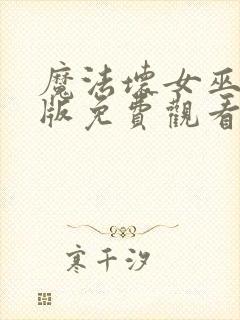 魔法壞女巫
版免費觀看
寒千汐